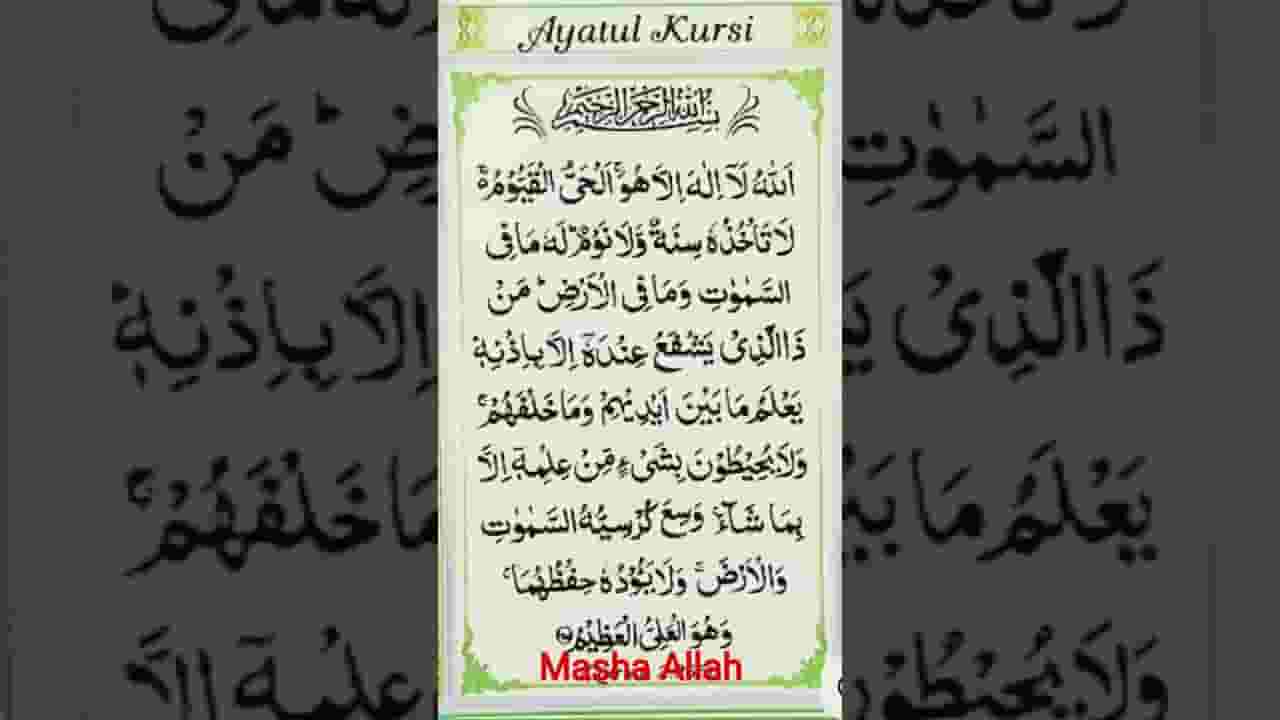 Ayatul Kursi
بسم الله الرحمن الرحيم
اَللّٰهُ لَآ اِلٰهَ اِلَّا هُوَۚ اَلْحَىُّ الْقَيُّوْمُ ەۚ
لَا تَاْخُذُهٗ سِنَةٌ وَّلَا نَوْمٌؕ لَهٗ مَا فِى
السَّمٰوٰتِ وَمَا فِى الْاَرْضِؕ مَنْ
ذَا الَّذِىْ يَشْفَعُ عِنْدَهٗٓ اِلَّا بِاِذْنِهٖؕ
يَعْلَمُ مَا بَيْنَ اَيْدِيْهِمْ وَمَا خَلْفَهُمْۚ
وَلَا يُحِيْطُوْنَ بِشَىْءٍ مِّنْ عِلْمِهٖٓ اِلَّا
بِمَا شَآءَۚ وَسِعَ كُرْسِيُّهُ السَّمٰوٰتِ
وَالْاَرْضَۚ وَلَا يَـُٔوْدُهٗ حِفْظُهُمَاۚ
وَهُوَ الْعَلِىُّ الْعَظِيْمُ
Masha Allah